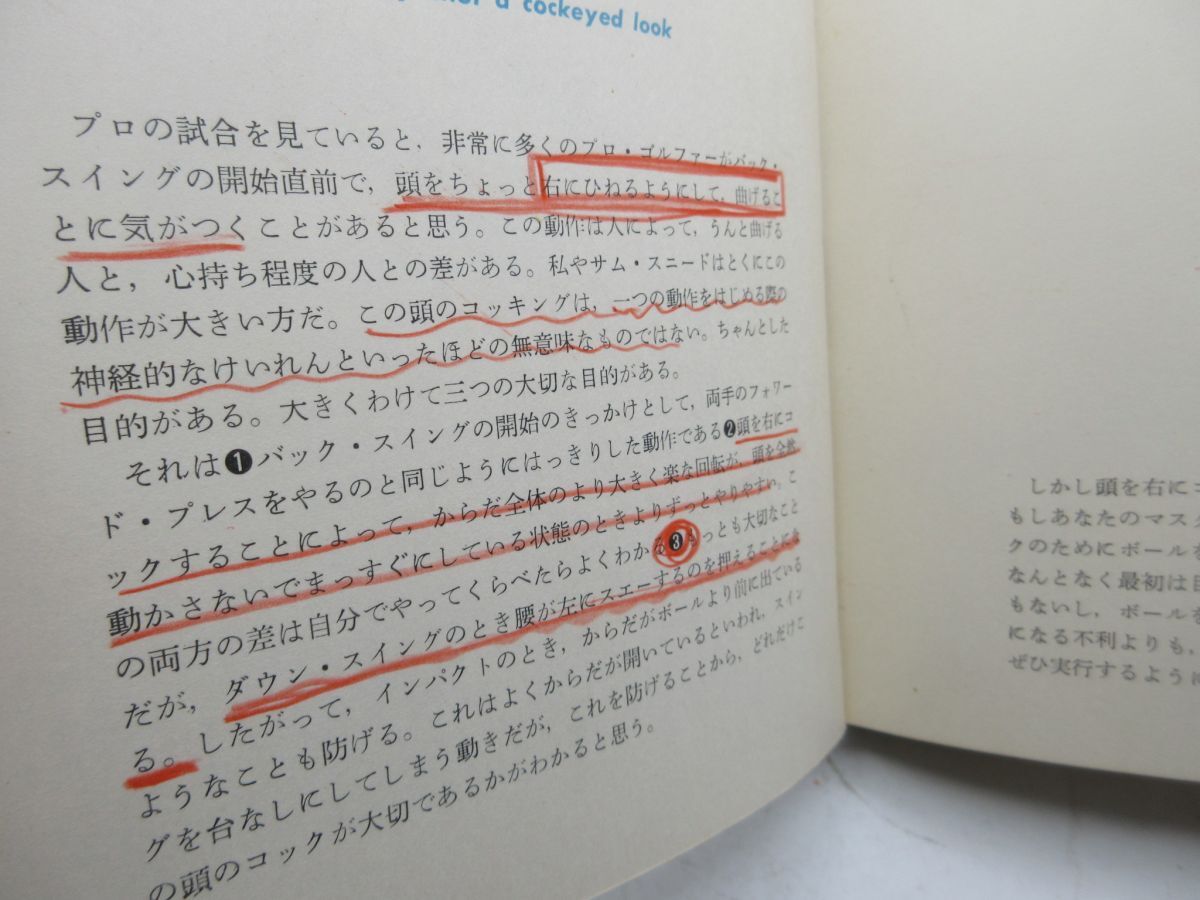 a cockeyed look
プロの試合を見ていると，非常に多くのプロ・ゴルファーがバック・
スイングの開始直前で，頭をちょっと右にひねるようにして，曲げるこ
とに気がつくことがあると思う。この動作は人によって，うんと曲げる
人と，心持ち程度の人との差がある。私やサム・スニードはとくにこの
動作が大きい方だ。この頭のコッキングは，一つの動作をはじめる際の
神経的なけいれんといったほどの無意味なものではない。ちゃんとした
目的がある。大きくわけて三つの大切な目的がある。
それは❶バック・スイングの開始のきっかけとして，両手のフォワー
ド・プレスをやるのと同じようにはっきりした動作である❷頭を右にコ
ックすることによって，からだ全体のより大きく楽な回転が，頭を全然
動かさないでまっすぐにしている状態のときよりずっとやりやすい。こ
の両方の差は自分でやってくらべたらよくわかる❸もっとも大切なこと
だが，ダウン・スイングのとき腰が左にスエーするのを押えることにな
る。したがって，インパクトのとき，からだがボールより前に出ている
ようなことも防げる。これはよくからだが開いているといわれ，スイン
グを台なしにしてしまう動きだが，これを防げることから，どれだけこ
の頭のコックが大切であるかがわかると思う。
しかし頭を右にコ
もしあなたのマス
クのためにボールを
なんとなく最初は目
もないし，ボールを
になる不利よりも，
ぜひ実行するように